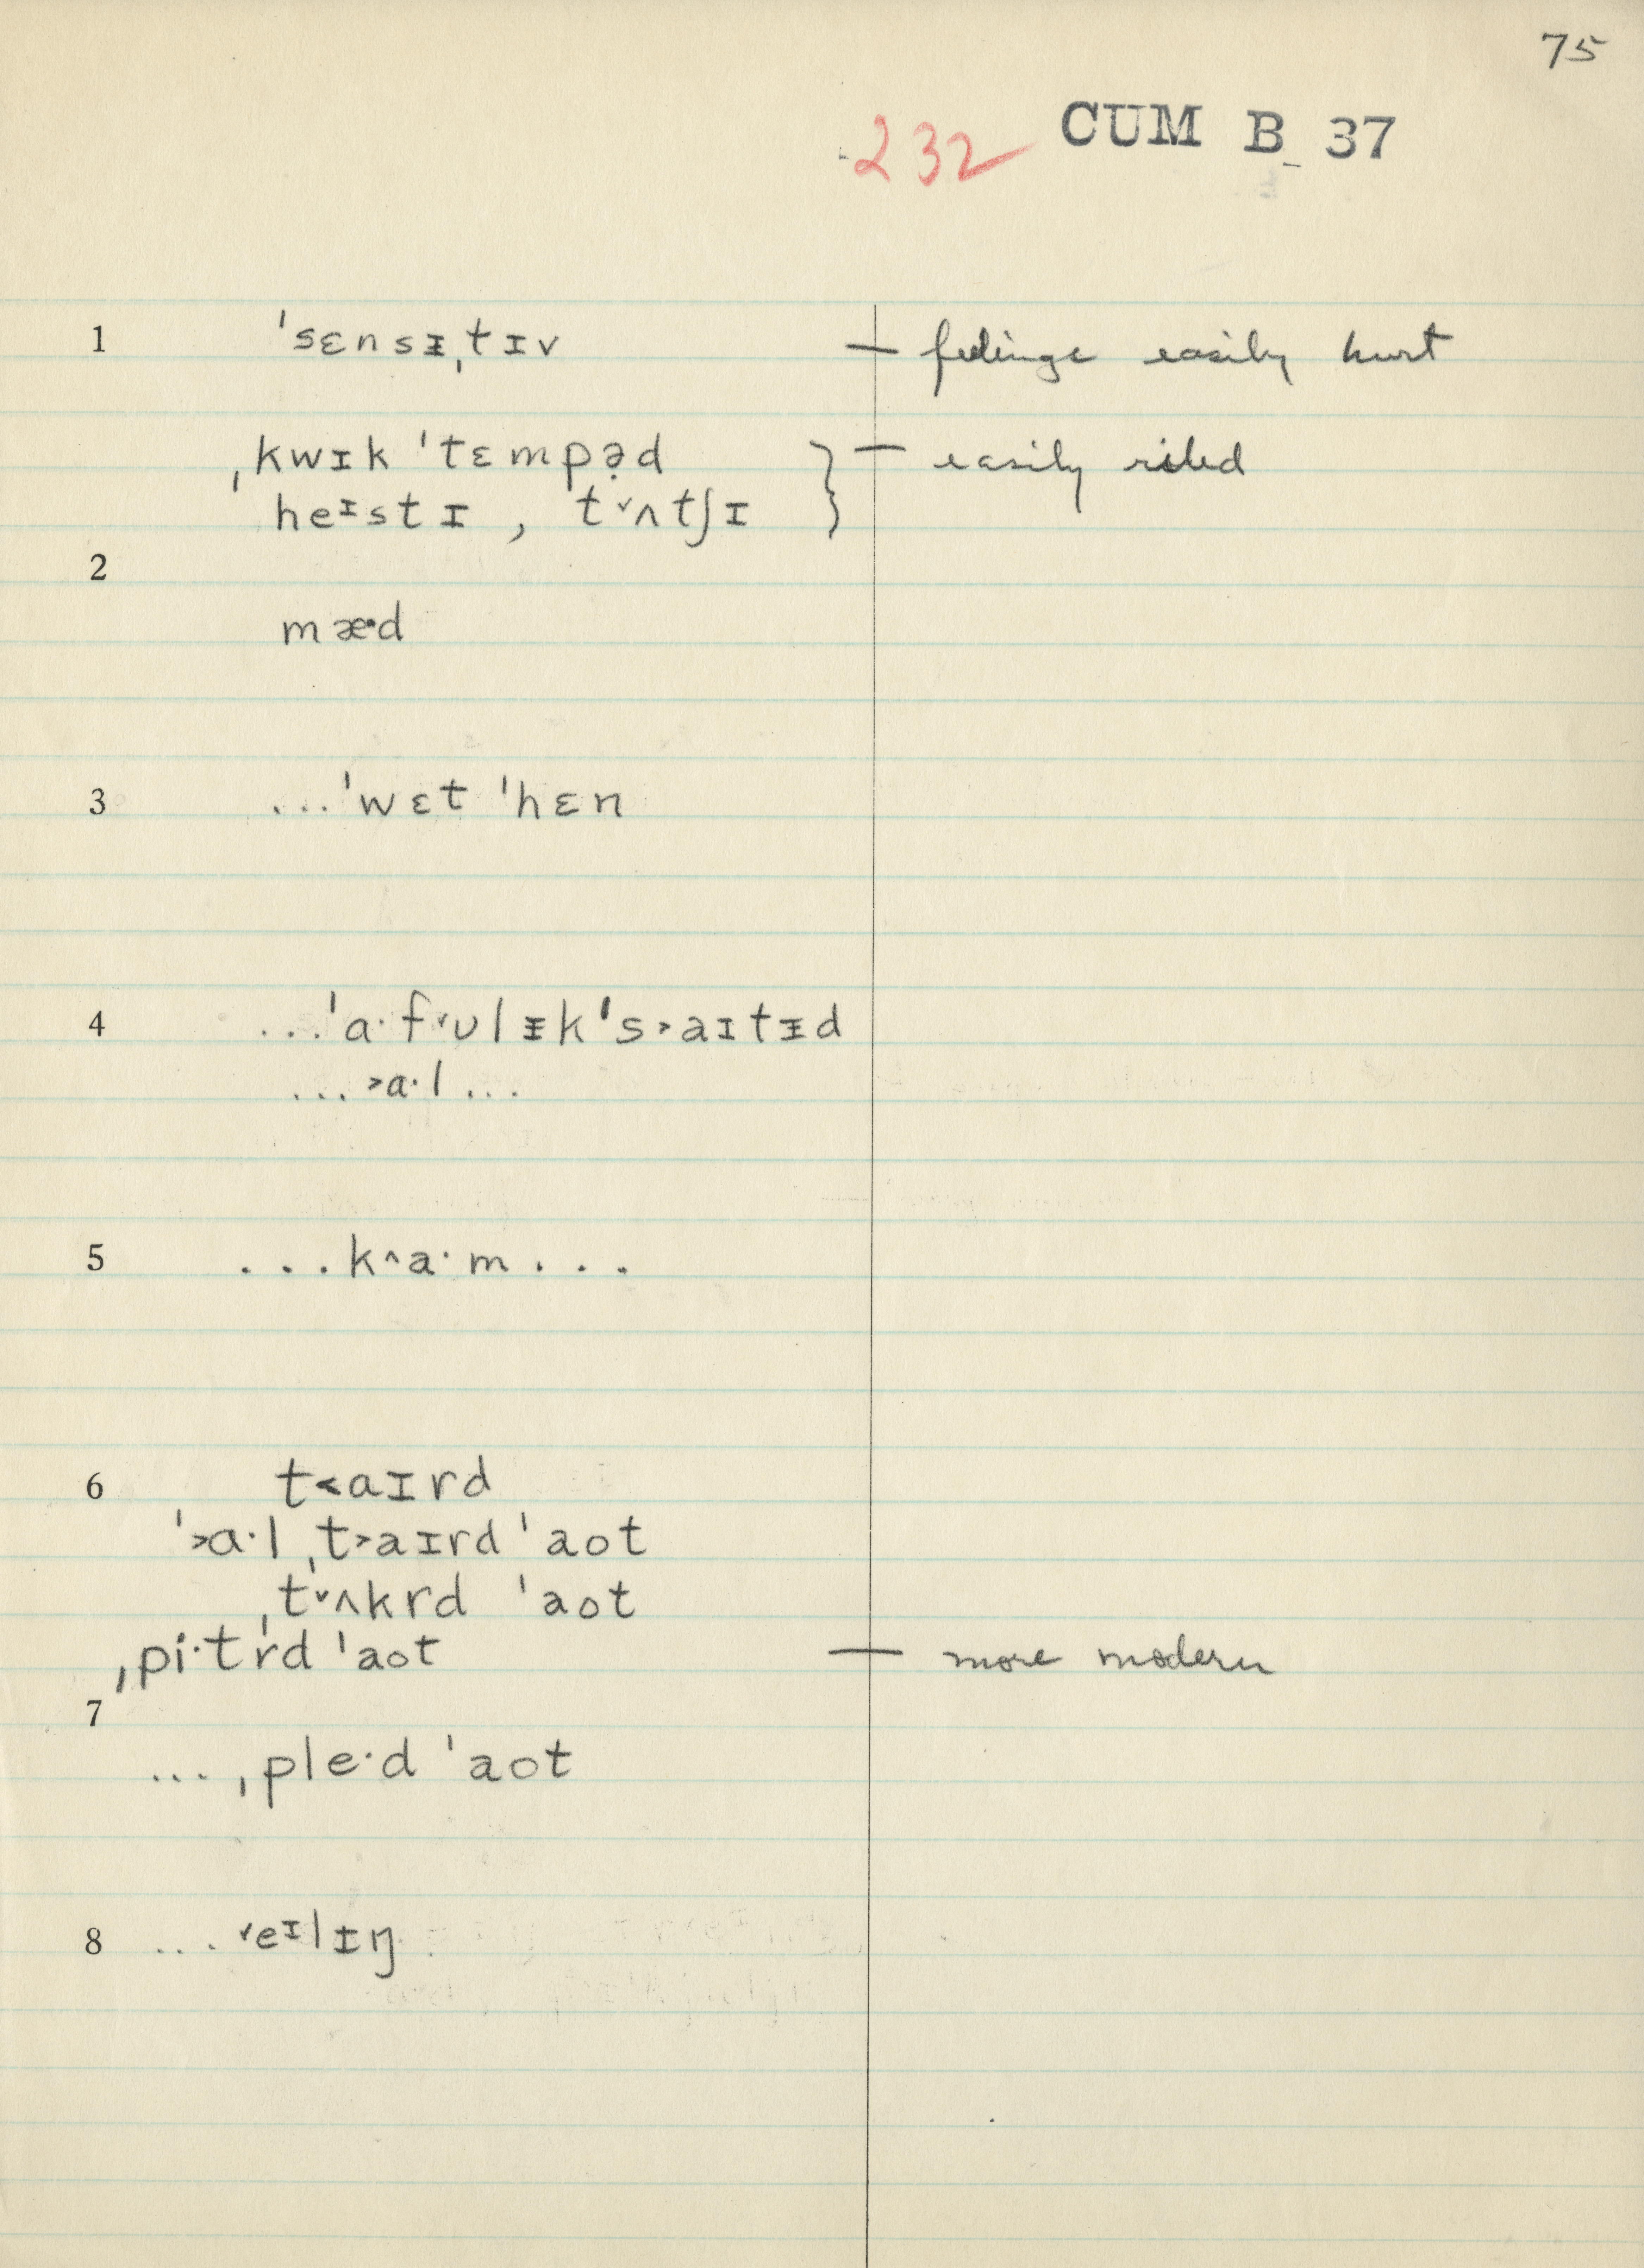 75
232 CUM B 37
1 ˈsɛnsᵻˌtɪv — feelings easily hurt
ˌkwɪk ˈtɛmpə̣d } — easily riled
heᶦstɪ , t˅ʌtʃɪ
2
mæ·d
3 ...ˈwɛt ˈhɛn
4 ...ˈa·f˅ʊlᵻkˈs˃aɪtᵻd
...˃a·l...
5 ...k˄a·m...
6 t˂aɪrd
ˈ˃a·l ˌt˃aɪrd ˈaot
ˌt˅ʌkrd ˈaot
ˌpi·tr̍d ˈaot — more modern
7
... ˌple·d ˈaot
8 ... ˅eᶦlᵻŋ